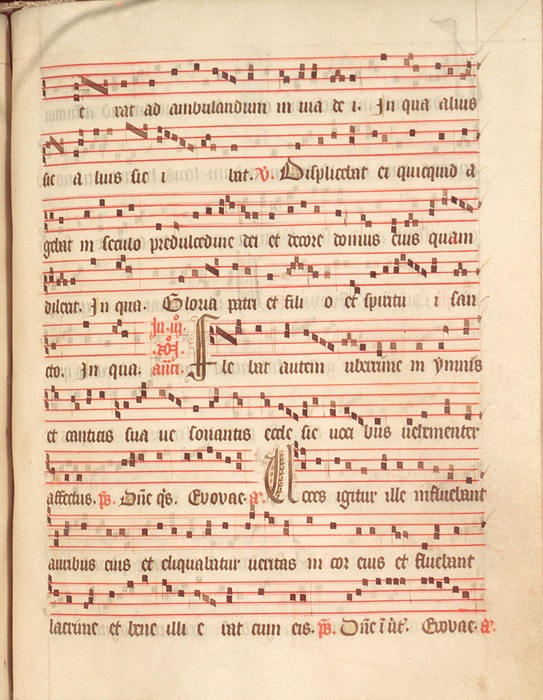 e rat ad ambulandum in uia de i. In qua alius
sic a luis sic i bat. V. Displicebat ei quicquid a
gebat in seculo predulcedine dei et decore domus eius quam
dilexit. In qua. Gloria patri et fili o et spiritu i san
cto. In qua. In iii. añ. Fle bat autem uberrime in ymnis
et canticis sua ue sonantis eccle sie uoci bus uehementer
affectus. ps. Dñe qs. Evovae. a. Uoces igitur ille influebant
auribus eius et eliquabatur ueritas in cor eius et fluebant
lacrime et bene illi e rat cum eis. ps. Dñe i uit. Evovae. a.